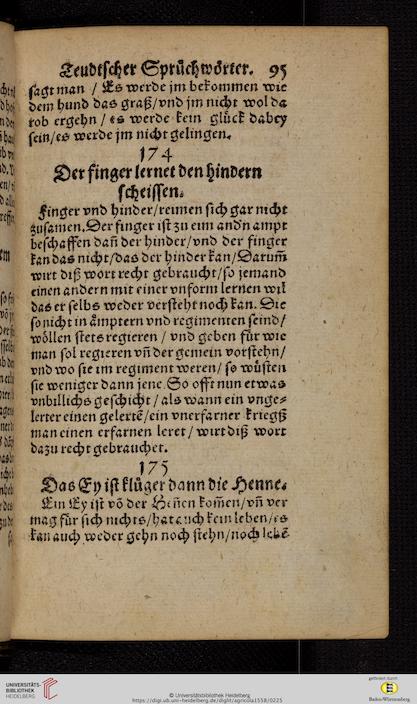 Teudtscher Sprüchwörter. 95
sagt man / Es werde jm bekommen wie
dem hund das graß/vnd jm nicht wol da
rob ergehn / es werde kein glück dabey
sein/es werde jm nicht gelingen.
174
Der finger lernet den hindern
scheissen.
Finger vnd hinder/reimen sich gar nicht
zusamen. Der finger ist zu eim andn ampt
beschaffen dañ der hinder/vnd der finger
kan das nicht/das der hinder kan/Darum̃
wirt diß wort recht gebraucht/so jemand
einen andern mit einer vnform lernen wil
das er selbs weder versteht noch kan. Die
so nicht in ämptern vnd regimenten seind/
wöllen stets regieren / vnd geben für wie
man sol regieren vñ der gemein vorstehn/
vnd wo sie im regiment weren/ so wüsten
sie weniger dann jene. So offt nun etwas
vnbillichs geschicht / als wann ein vnge=
lerter einen gelertẽ/ein vnerfarner kriegß
man einen erfarnen leret / wirt diß wort
dazu recht gebrauchet.
175
Das Ey ist klüger dann die Henne.
Ein Ey ist võ der Heñen kom̃en/vñ ver
mag für sich nichts/hat auch kein leben/es
kan auch weder gehn noch stehn/noch lebẽ
UNIVERSITÄTS-
BIBLIOTHEK
HEIDELBERG
© Universitätsbibliothek Heidelberg
https://digi.ub.uni-heidelberg.de/diglit/agricola1558/0225
gefördert durch
Baden-Württemberg